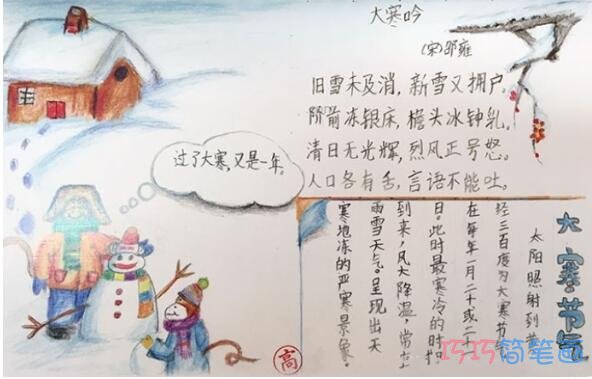 大寒吟
(宋)邵雍
旧雪未及消，新雪又拥户。
阶前冻银床，檐头冰钟乳。
清日无光辉，烈风正号怒。
人口各有舌，言语不能吐。
过了大寒，又是一年。
大寒节气
太阳照射到
经三百度为大寒节
在每年一月二十或二十一
日。此时最寒冷的时
到来，风大降温，常
雨雪天气。呈现出天
寒地冻的严寒景象。
高
巧巧简笔画